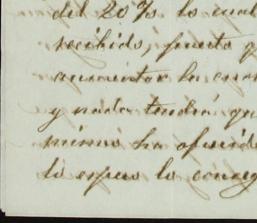 del 20% lo cual
recibido, puesto q
aumentar la cua
y nada tendrá qu
mismo ha ofrecido
lo espero lo conseg